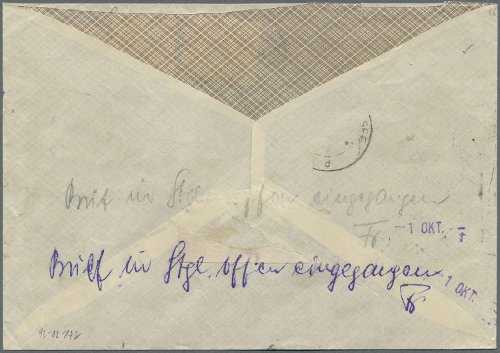 Brief in Stgl. offen eingegangen
Fr
-1 OKT.
Brief in Stgl. offen eingegangen
Fr
1 OKT.